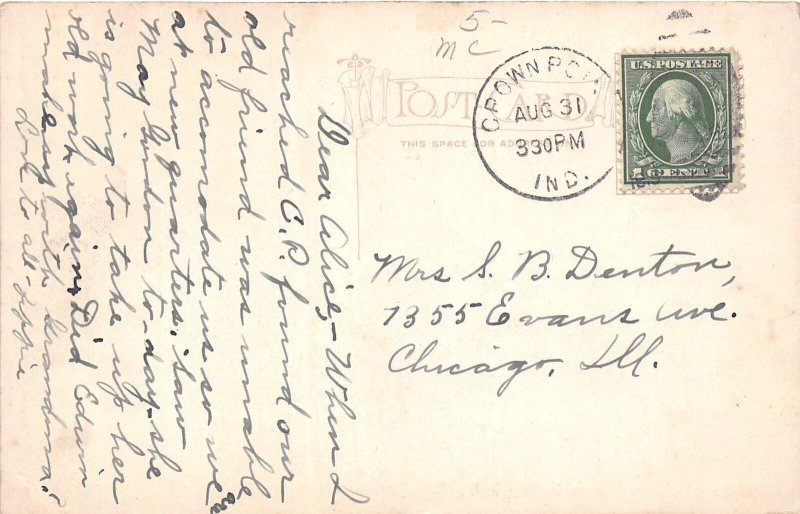 5-
mc
POST CARD
THIS SPACE FOR ADDRESS ONLY
CROWN POINT
AUG 31
330PM
IND.
U.S. POSTAGE
1 CENT 1
Mrs S. B. Denton,
1355 Evans Ave.
Chicago, Ill.
Dear Alice,- When I
reached C.P. found our
old friend was unable
to accomodate us so we
at new quarters. Saw
May Gordon to-day-she
is going to take up her
old work again. Did Edwin
make up with Grandma?
Love to all-